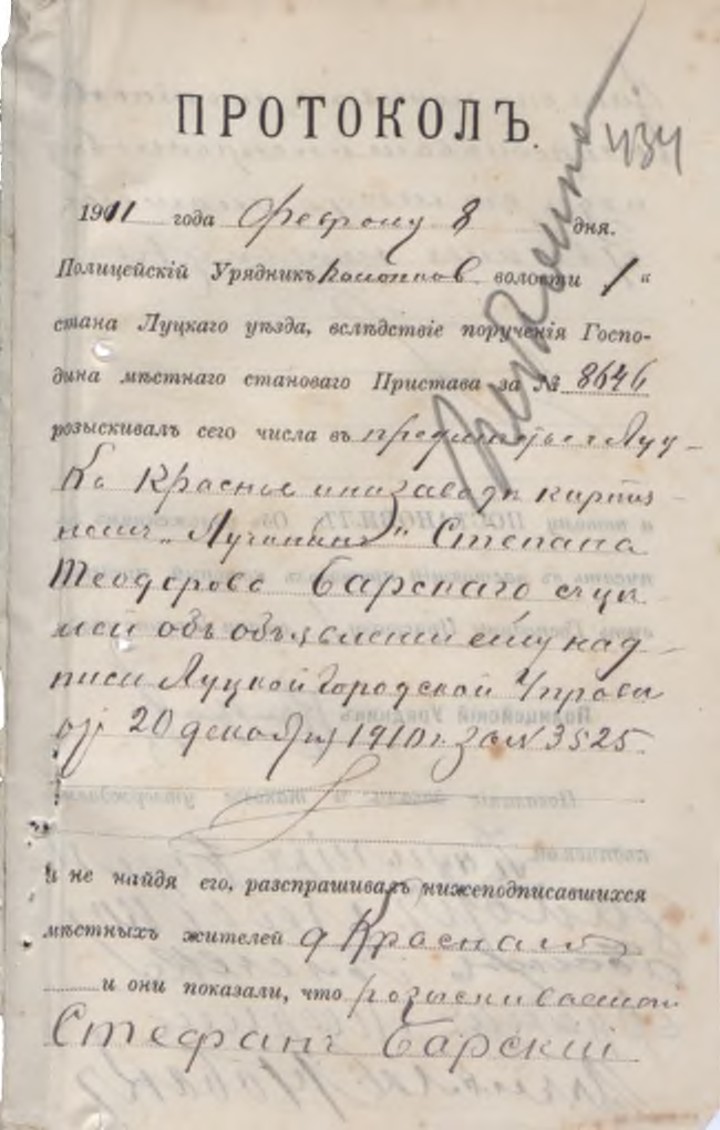 ПРОТОКОЛЪ.
434
1911 года Февраля 8 дня.
Полицейскій Урядникъ волости 1 "
стана Луцкаго уѣзда, вслѣдствіе порученія Госпо-
дина мѣстнаго становаго Пристава за № 8646
розыскивалъ сего числа въ предмѣстье г Луц-
ка Красне и на заводѣ
"Лучанинъ" Степана
Теодорова Барскаго съ цѣ
лей объ объявленіи ему над-
писи Луцкой Городской Управы
отъ 20 декабря 1910 г. за N 3525.
И не найдя его, разспрашивалъ нижеподписавшихся
мѣстныхъ жителей Красная
и они показали, что розыскиваемый
Стефанъ Барскій